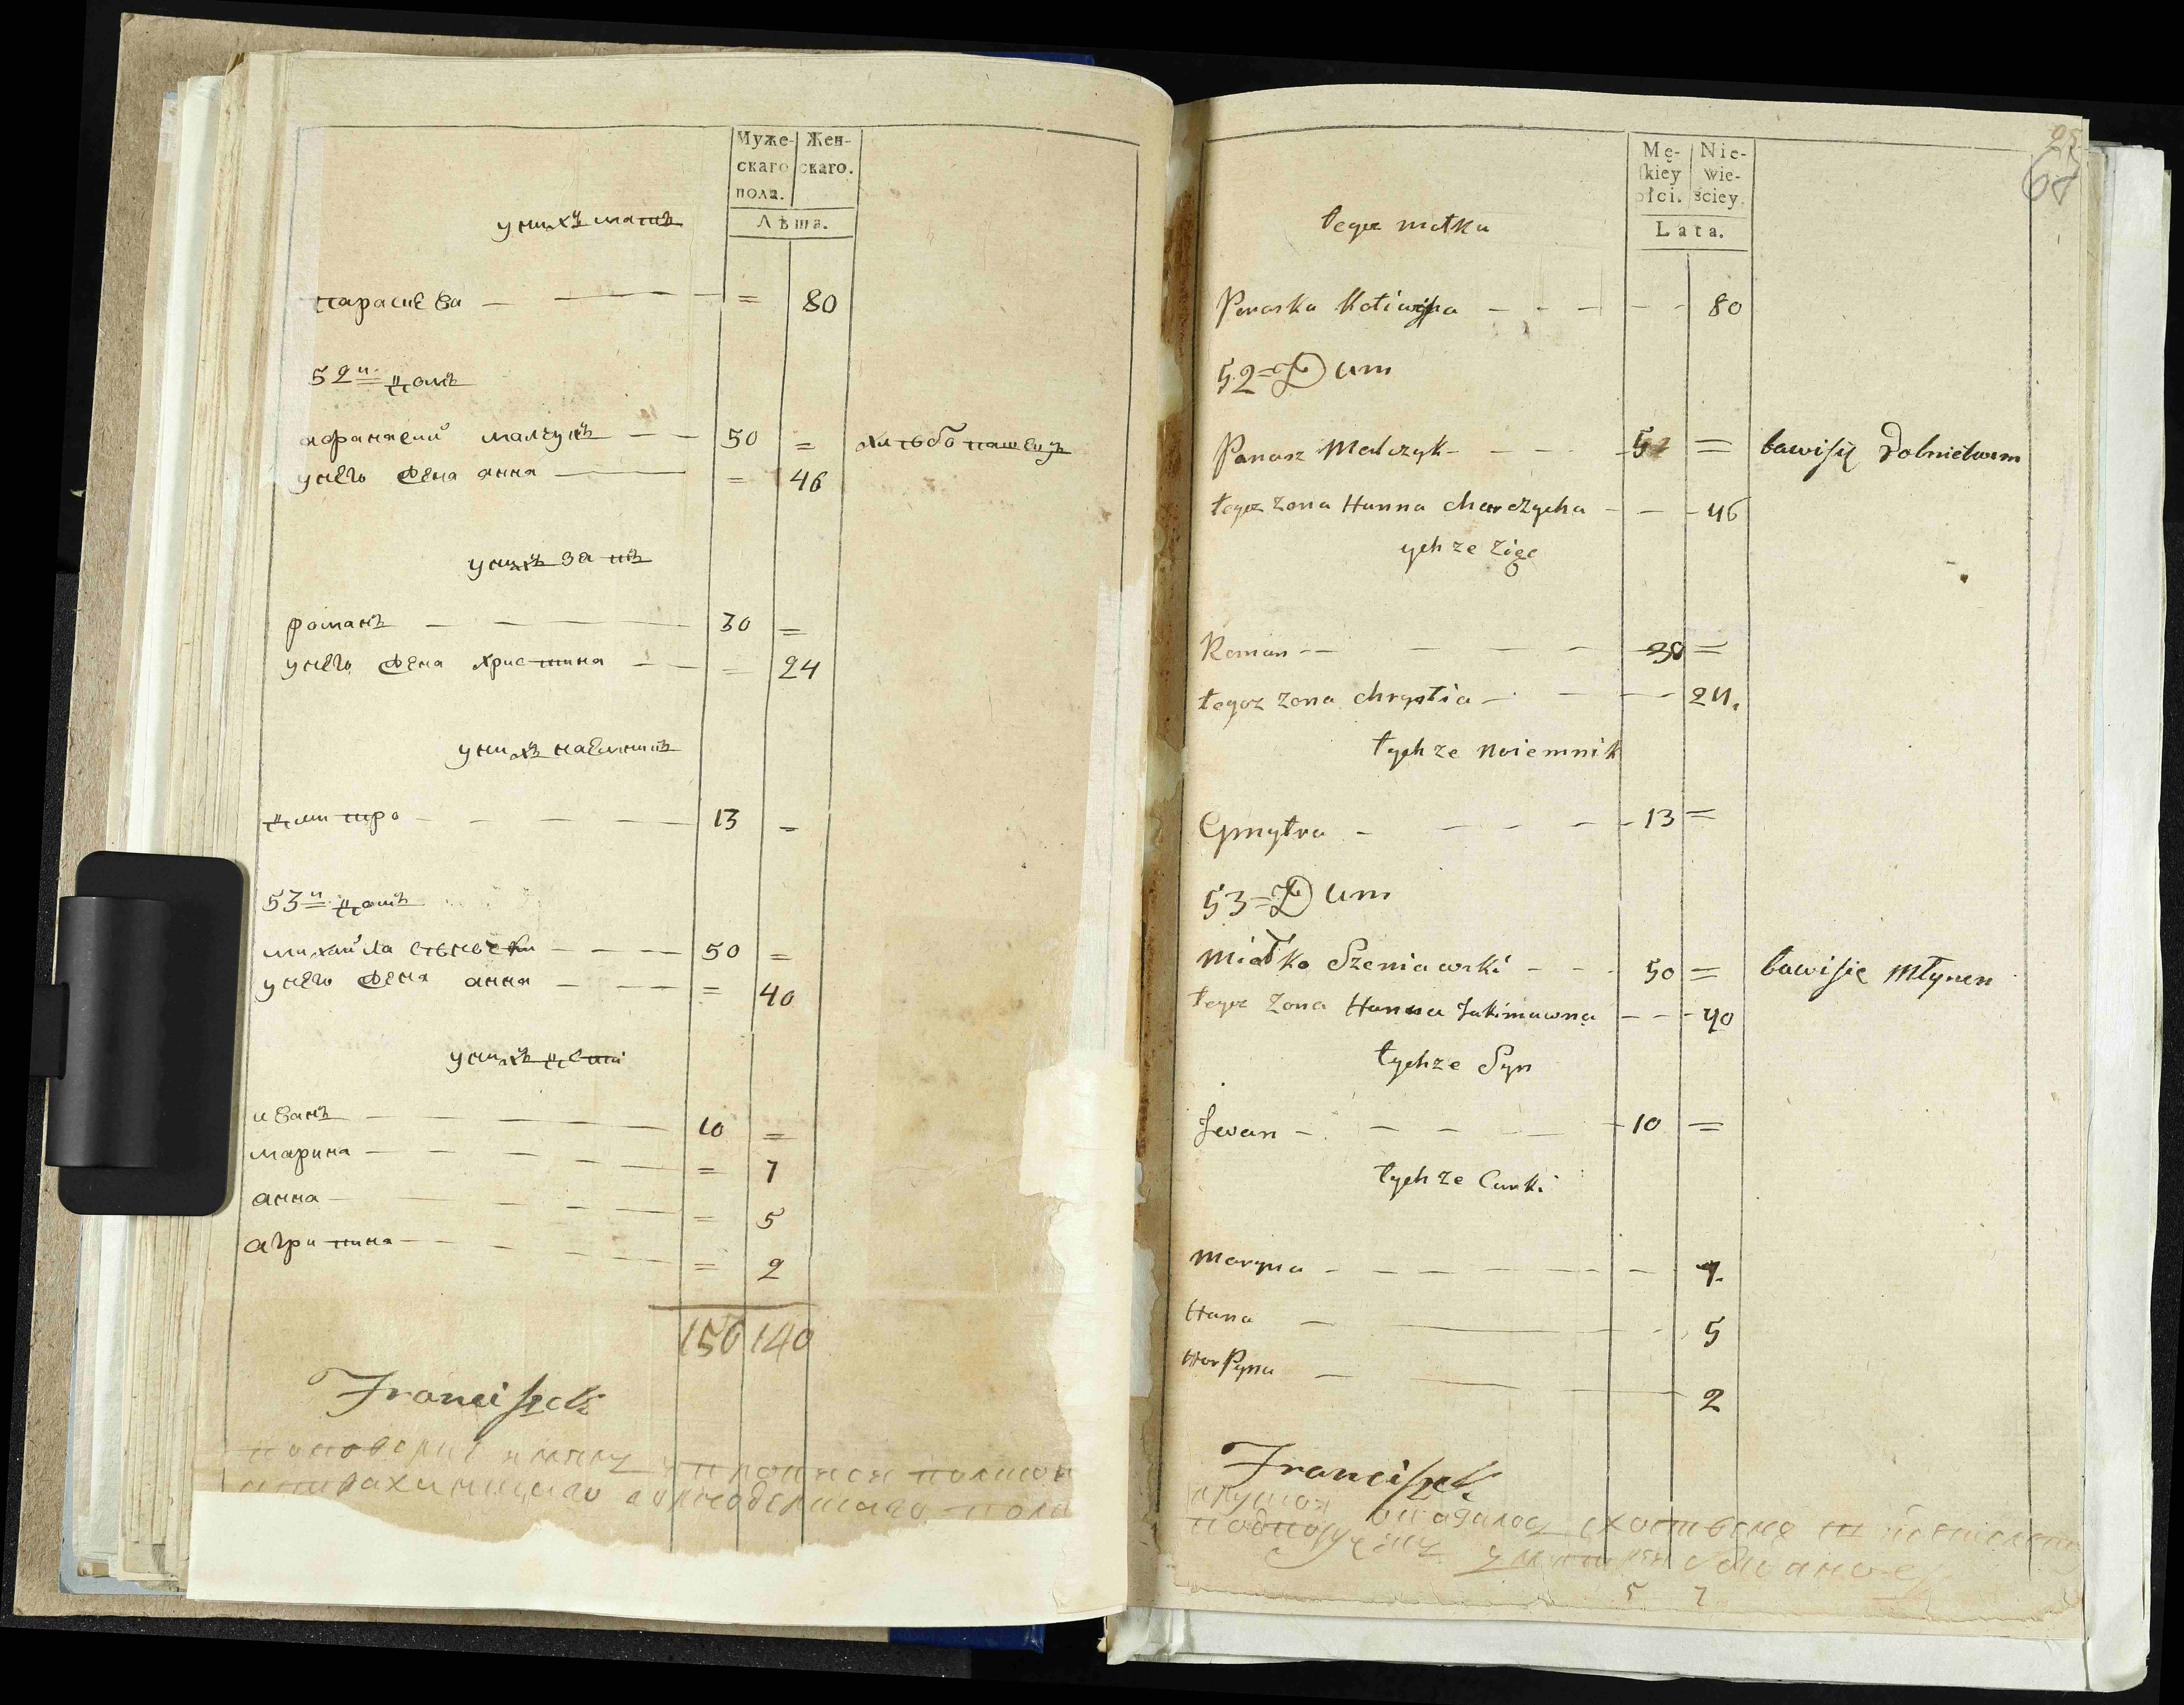 Муже-
скаго
пола.
Жен-
скаго.
Лѣта.
у нихъ мать
парасцева — — — = 80
52й домъ
афанасий малчукъ — — 50 = хлѣбопашецъ
у него жена анна — = 46
у нихъ зать
романъ — — — 30 =
у него жена христина — — = 24
у нихъ наемникъ
дмитро — — — 13 =
53й домъ
михайла — — — 50 =
у него жена анна — — — = 40
у нихъ дети
иванъ — — — 10 =
марина — — — = 7
анна — — — = 5
агрипина — — — = 2
156 140
Franciszek
25
67
Mę-
skiey
płci.
Nie-
wie-
ściey.
Lata.
tegoz matka
Paraska — — — 80
52 = Dum
Panasz Malczyk — — — = bawi się Rolnictwem
tegoz zona Hanna — — 46
ychze zięc
Roman — — — 30 =
tegoz zona Chrystia — — — 24.
tychze naiemnik
Gmytra — — — 13 =
53 = Dum
Miałko Szeniawski — — 50 = bawi się Młynem
tegoz zona Hanna Jakimuwna — — 40
tychze Syn
Jwan — — — 10 =
tychze Curki
Maryna — — — 7.
Hana — — — 5
HorPyna — — — 2
Franciszek
5 7